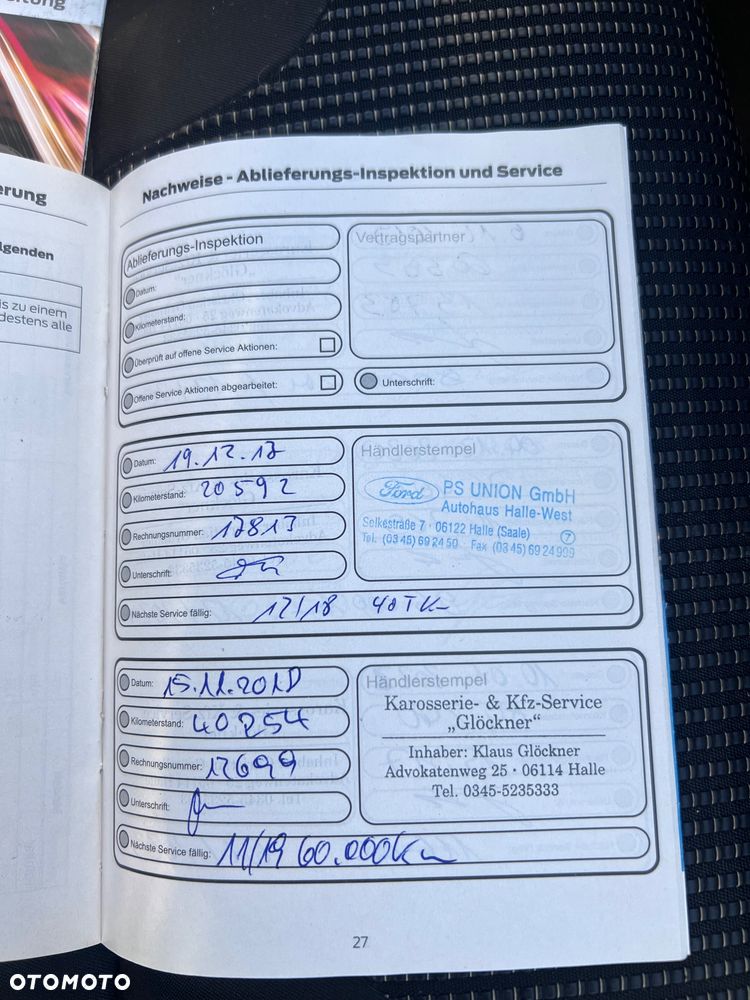 itung
erung
lgenden
is zu einem
destens alle
Nachweise - Ablieferungs-Inspektion und Service
Ablieferungs-Inspektion
Datum:
Kilometerstand:
Überprüft auf offene Service Aktionen:
Offene Service Aktionen abgearbeitet:
Vertragspartner
Unterschrift:
Datum: 19.12.17
Kilometerstand: 20592
Rechnungsnummer: 17813
Unterschrift:
Nächste Service fällig: 12/18 40TKm
Händlerstempel
Ford PS UNION GmbH
Autohaus Halle-West
Selkestraße 7 · 06122 Halle (Saale)
Tel. (0345) 69 24 50 Fax (0345) 69 24 999
7
Datum: 15.11.2018
Kilometerstand: 40254
Rechnungsnummer: 17699
Unterschrift:
Nächste Service fällig: 11/19 60.000Km
Händlerstempel
Karosserie- & Kfz-Service
„Glöckner“
Inhaber: Klaus Glöckner
Advokatenweg 25 · 06114 Halle
Tel. 0345-5235333
27
OTOMOTO